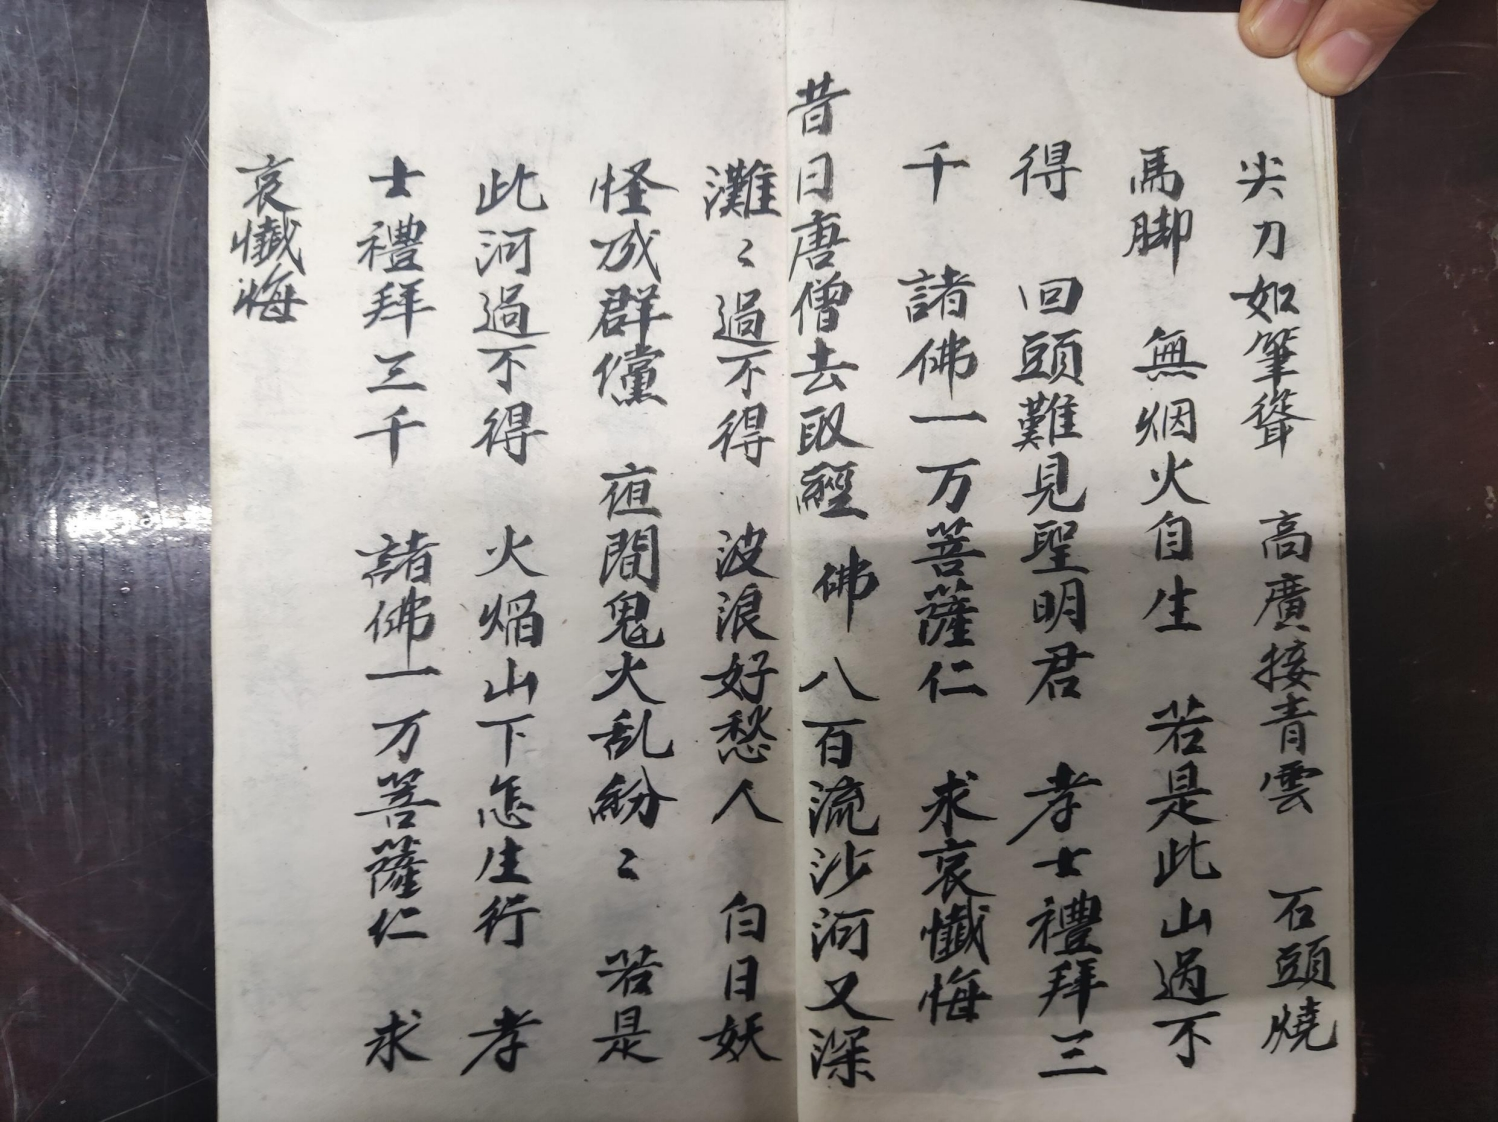 尖刀如筆聳　高廣接青雲　石頭燒
馬脚　無烟火自生　若是此山過不
得　回頭難見聖明君　孝士禮拜三
千　諸佛一万菩薩仁　求哀懺悔
昔日唐僧去取經　佛　八百流沙河又深
灘〻過不得　波浪好愁人　白日妖
怪成群儻　夜間鬼火乱紛〻　若是
此河過不得　火焰山下怎生行　孝
士禮拜三千　諸佛一万菩薩仁　求
哀懺悔